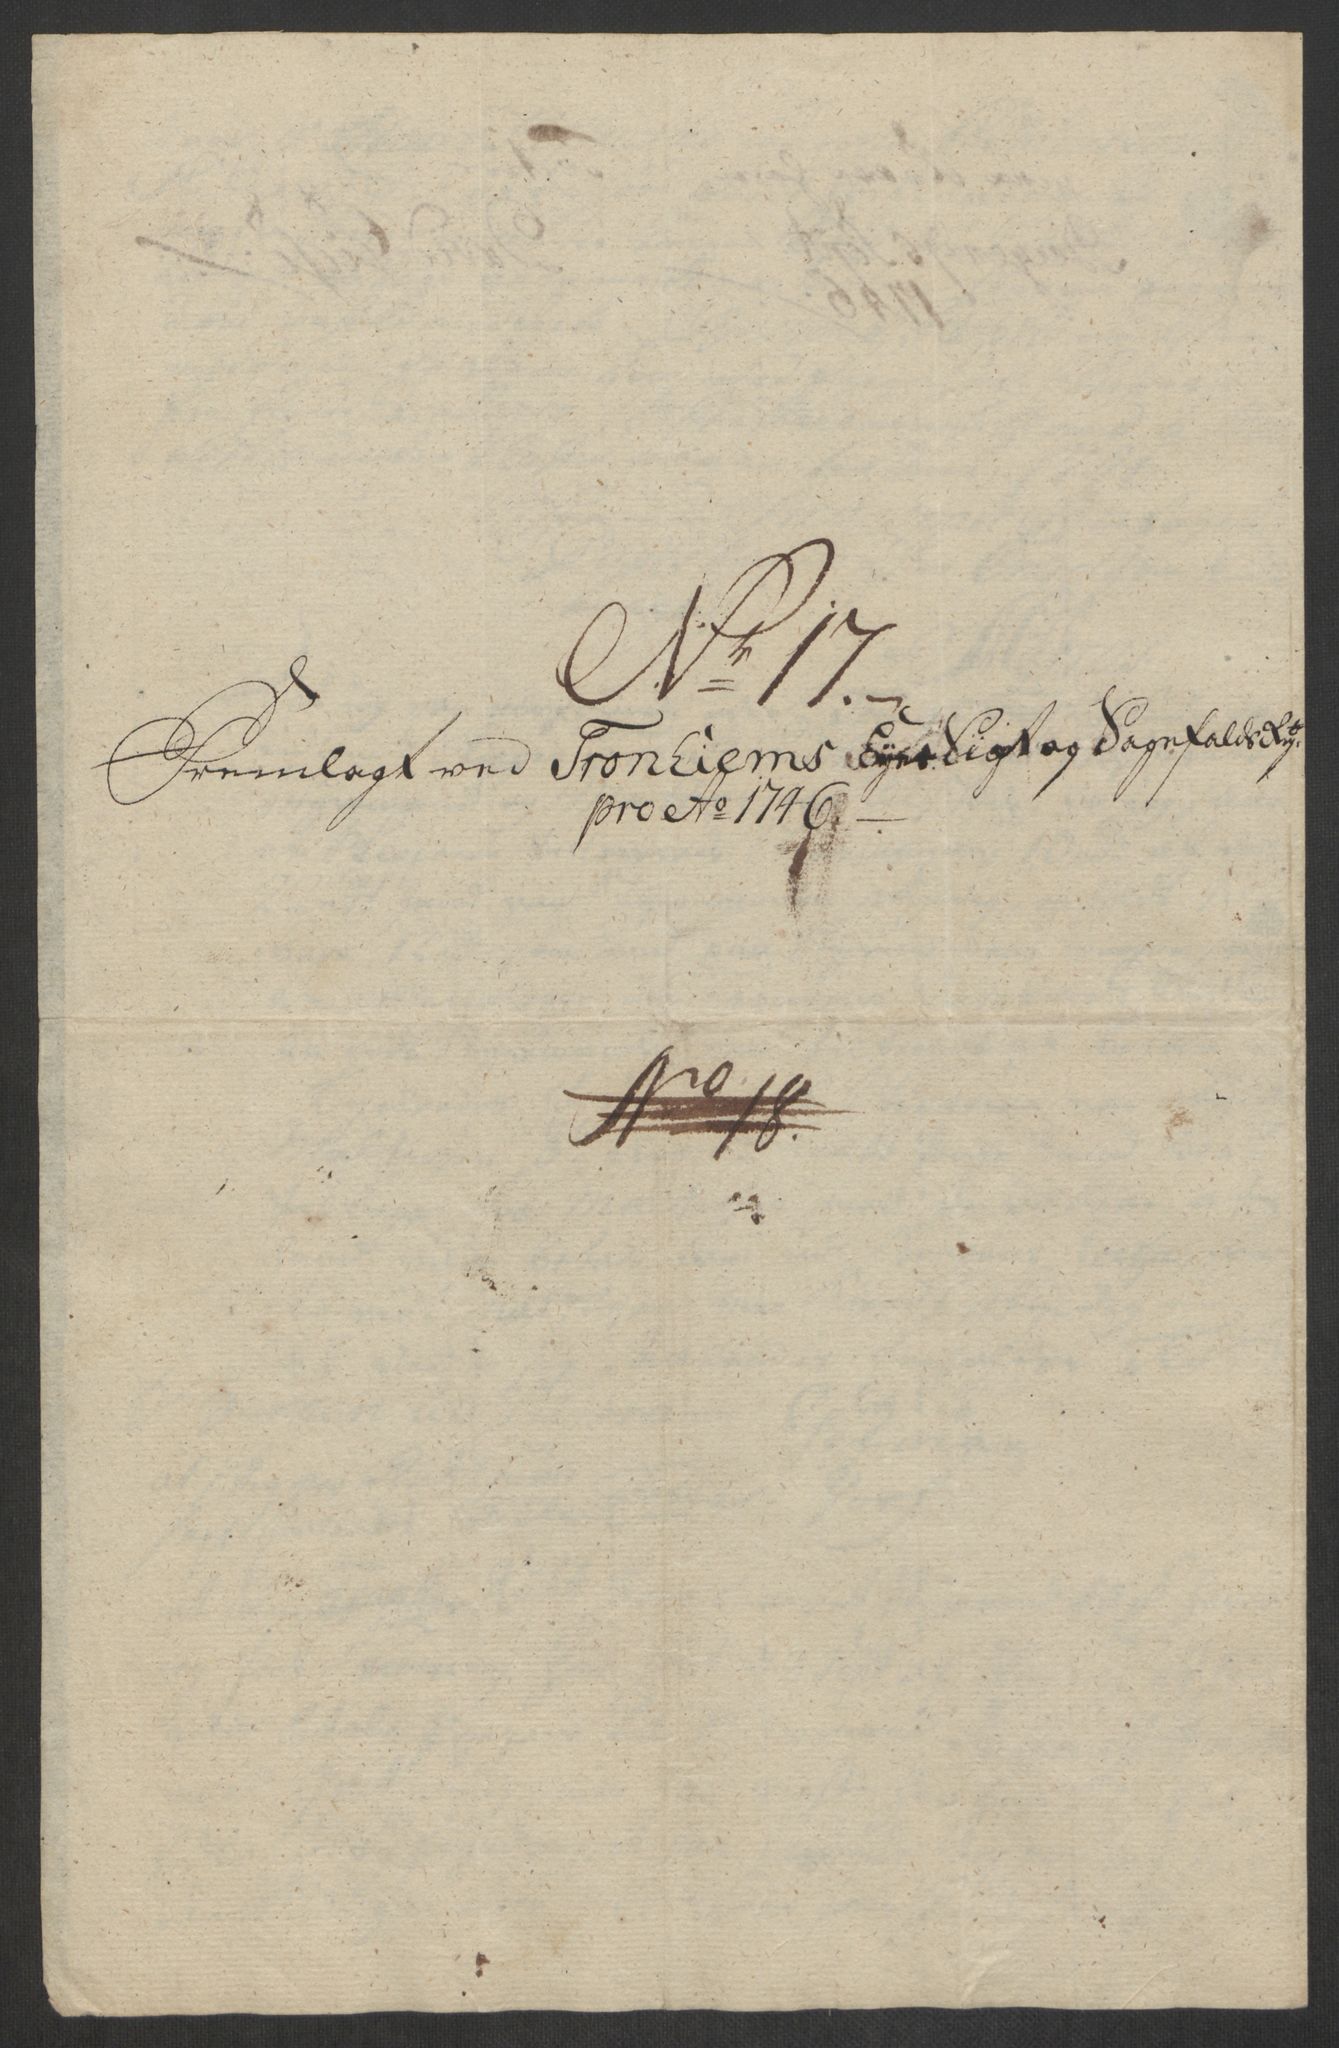 Nr 17.
Fremlagt ved Tronhiems Byes Sigt og Sagefalds Rg.
pro Ao 1746.
Nro 18.